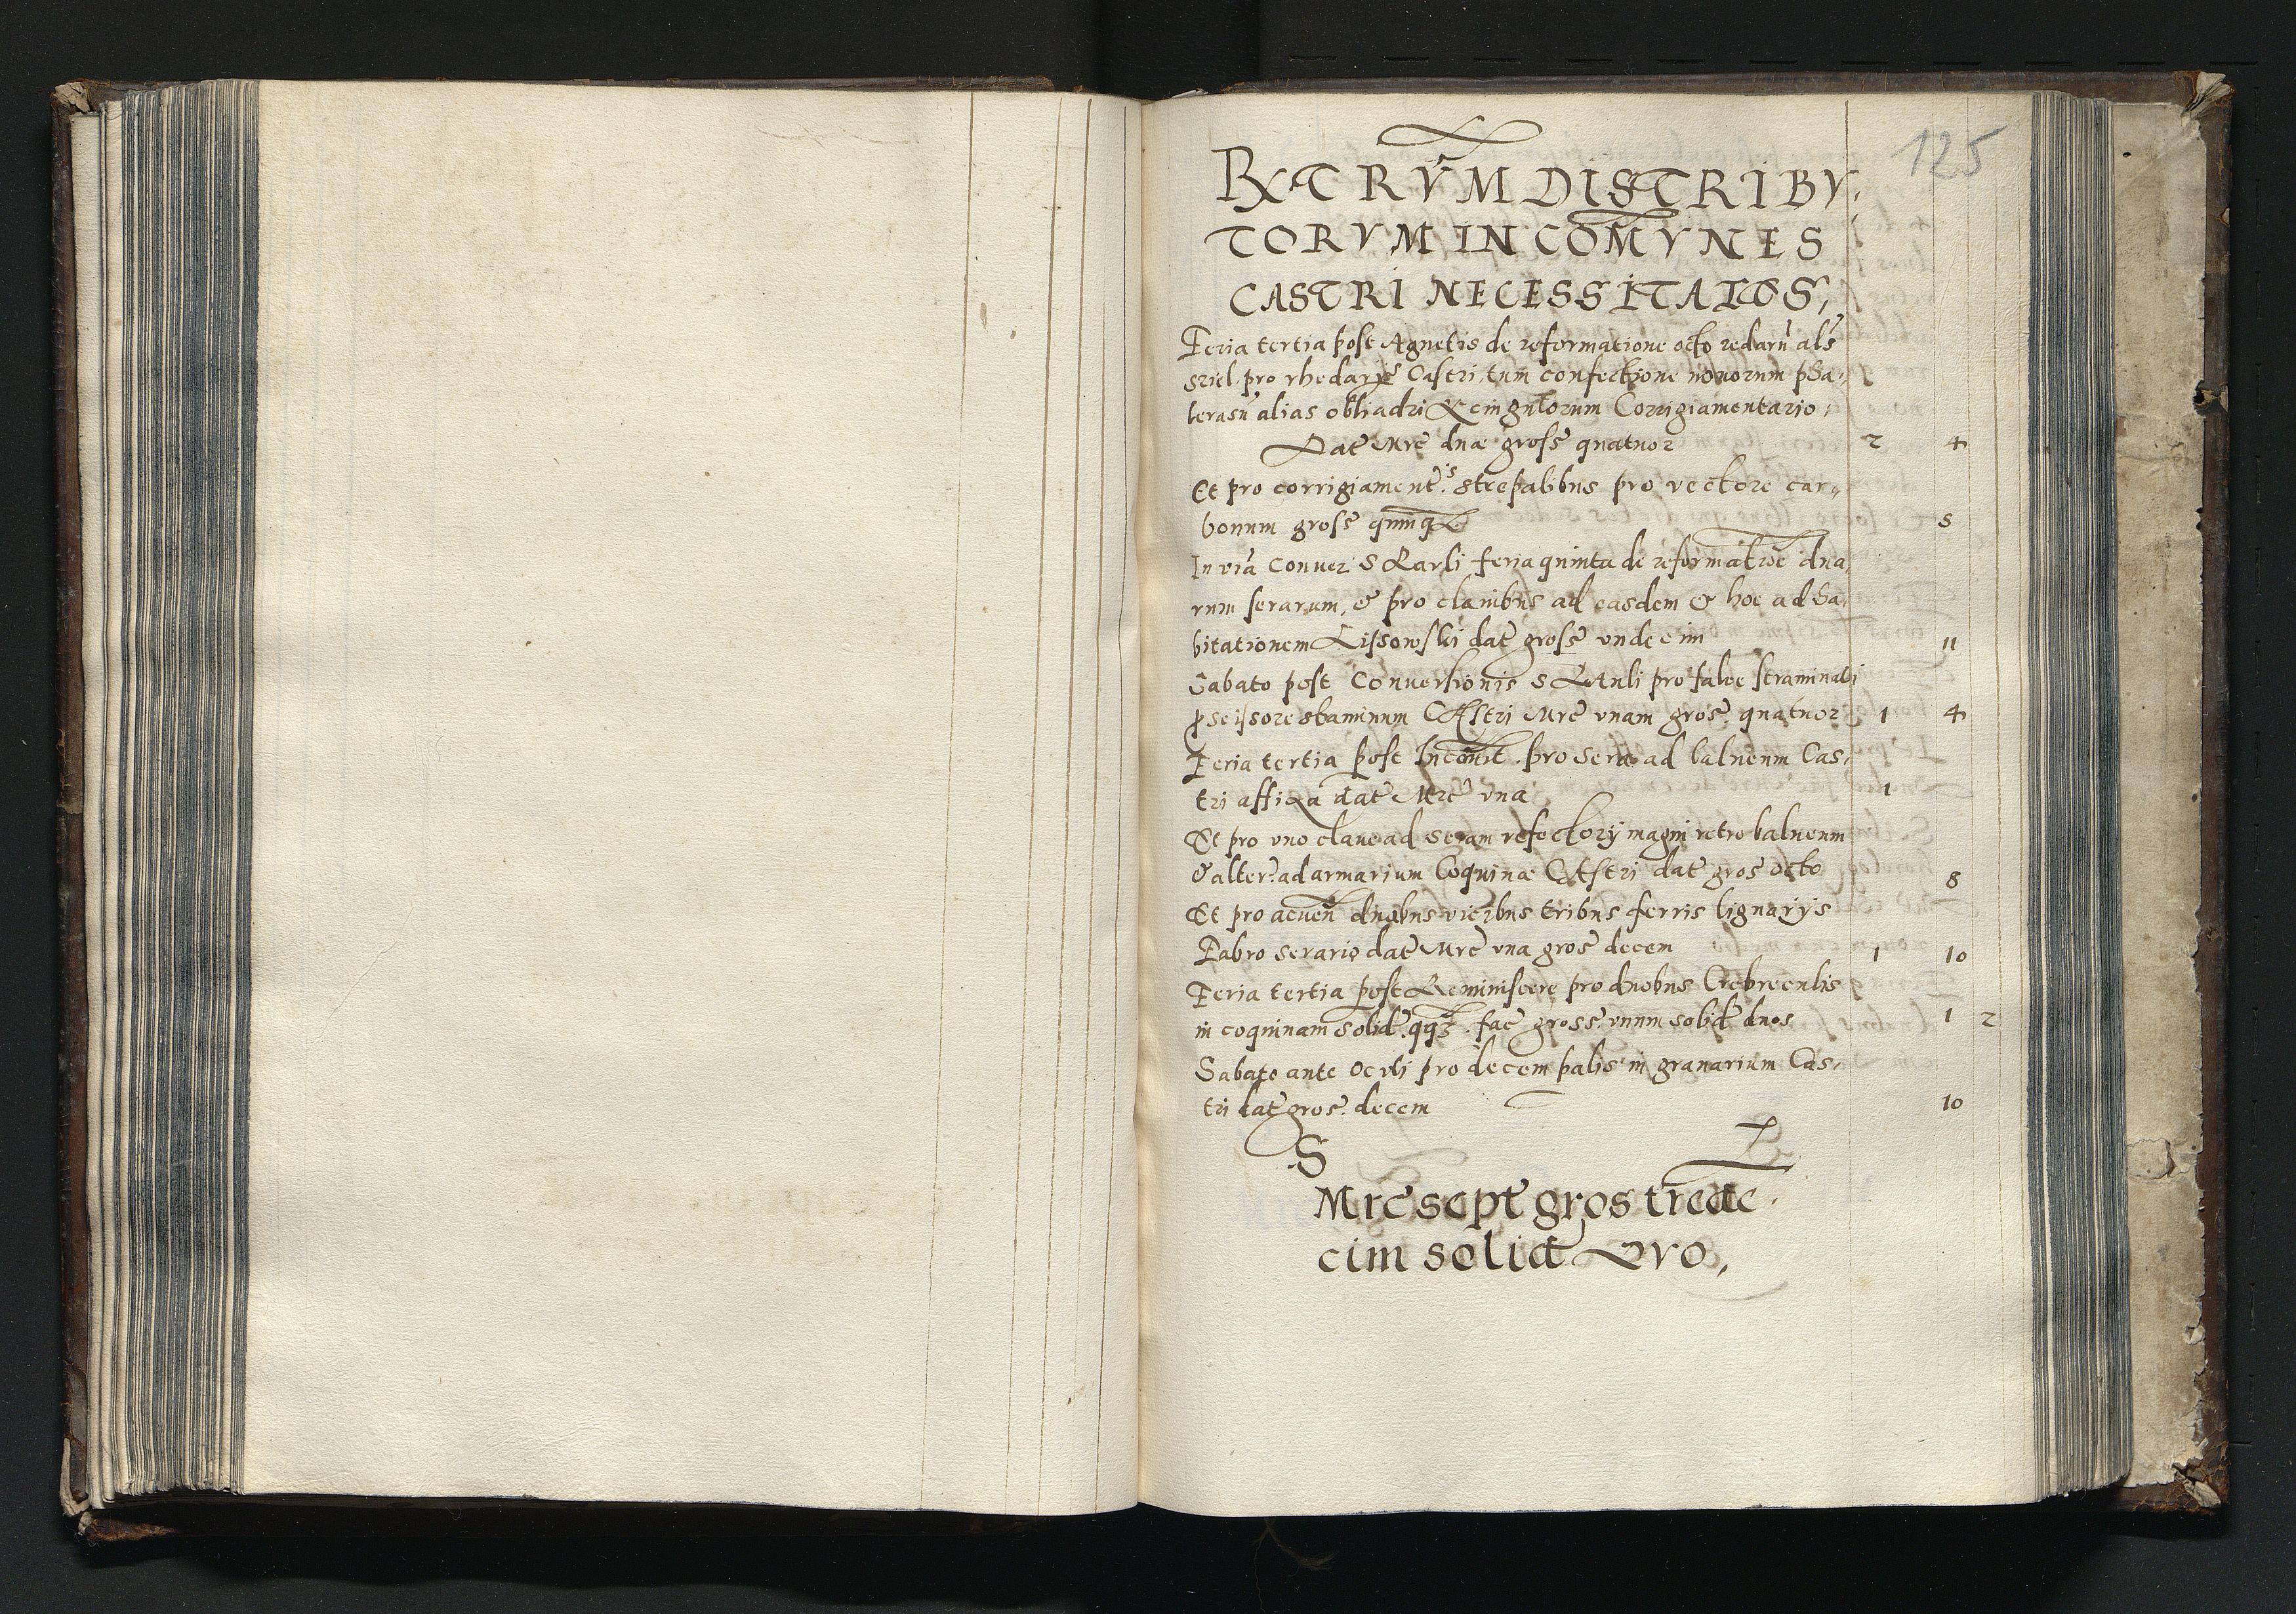 125
EXTRVM DISTRIBV,
TORVM IN COMVNES
CASTRI NECESSITATES,
Feria tertia post Agnetis de reformatione octo redarũ als
sziel pro rhedarijs Castri, tum confectione nouorum pha,
lerarũ alias obliadri & cingulorum Corrigiamentario,
Dat Mrc duas gross quatuor 2 4
Et pro corrigiament:is strepalibus pro vectore car,,
bonum gross quinq 5
In via Conuer S Pauli feria quinta de reformatioe dua,
rum serarum, & pro clauibus ad easdem & hoc ad ha,
bitationem Lissowski dat gross vndecim 11
Sabato post Conuersionis S PAuli pro falce straminali
p scissore straminum CAstri Mrc vnam gros. quatuor 1 4
Feria tertia post Inuocauit. pro sera ad balneum Cas,
tri affixa dat Mrc vna 1
Et pro vno claue ad seram refectorij magni retro balneum
& alter: ad armarium Coquinæ CAstri dat gros octo 8
Et pro acuen duabus vicibus tribus ferris lignarijs
Fabro serario dat Mrc vna gros decem 1 10
Feria tertia post Reminiscere pro duobus Crebreculis
in coquinam solid. qq3. fac gross. vnum solid duos 1 2
Sabato ante Oculi pro decem palis in granarium Cas,
tri dat gros. decem 10
S
Mrc sept gros trede
cim solid Dvo,